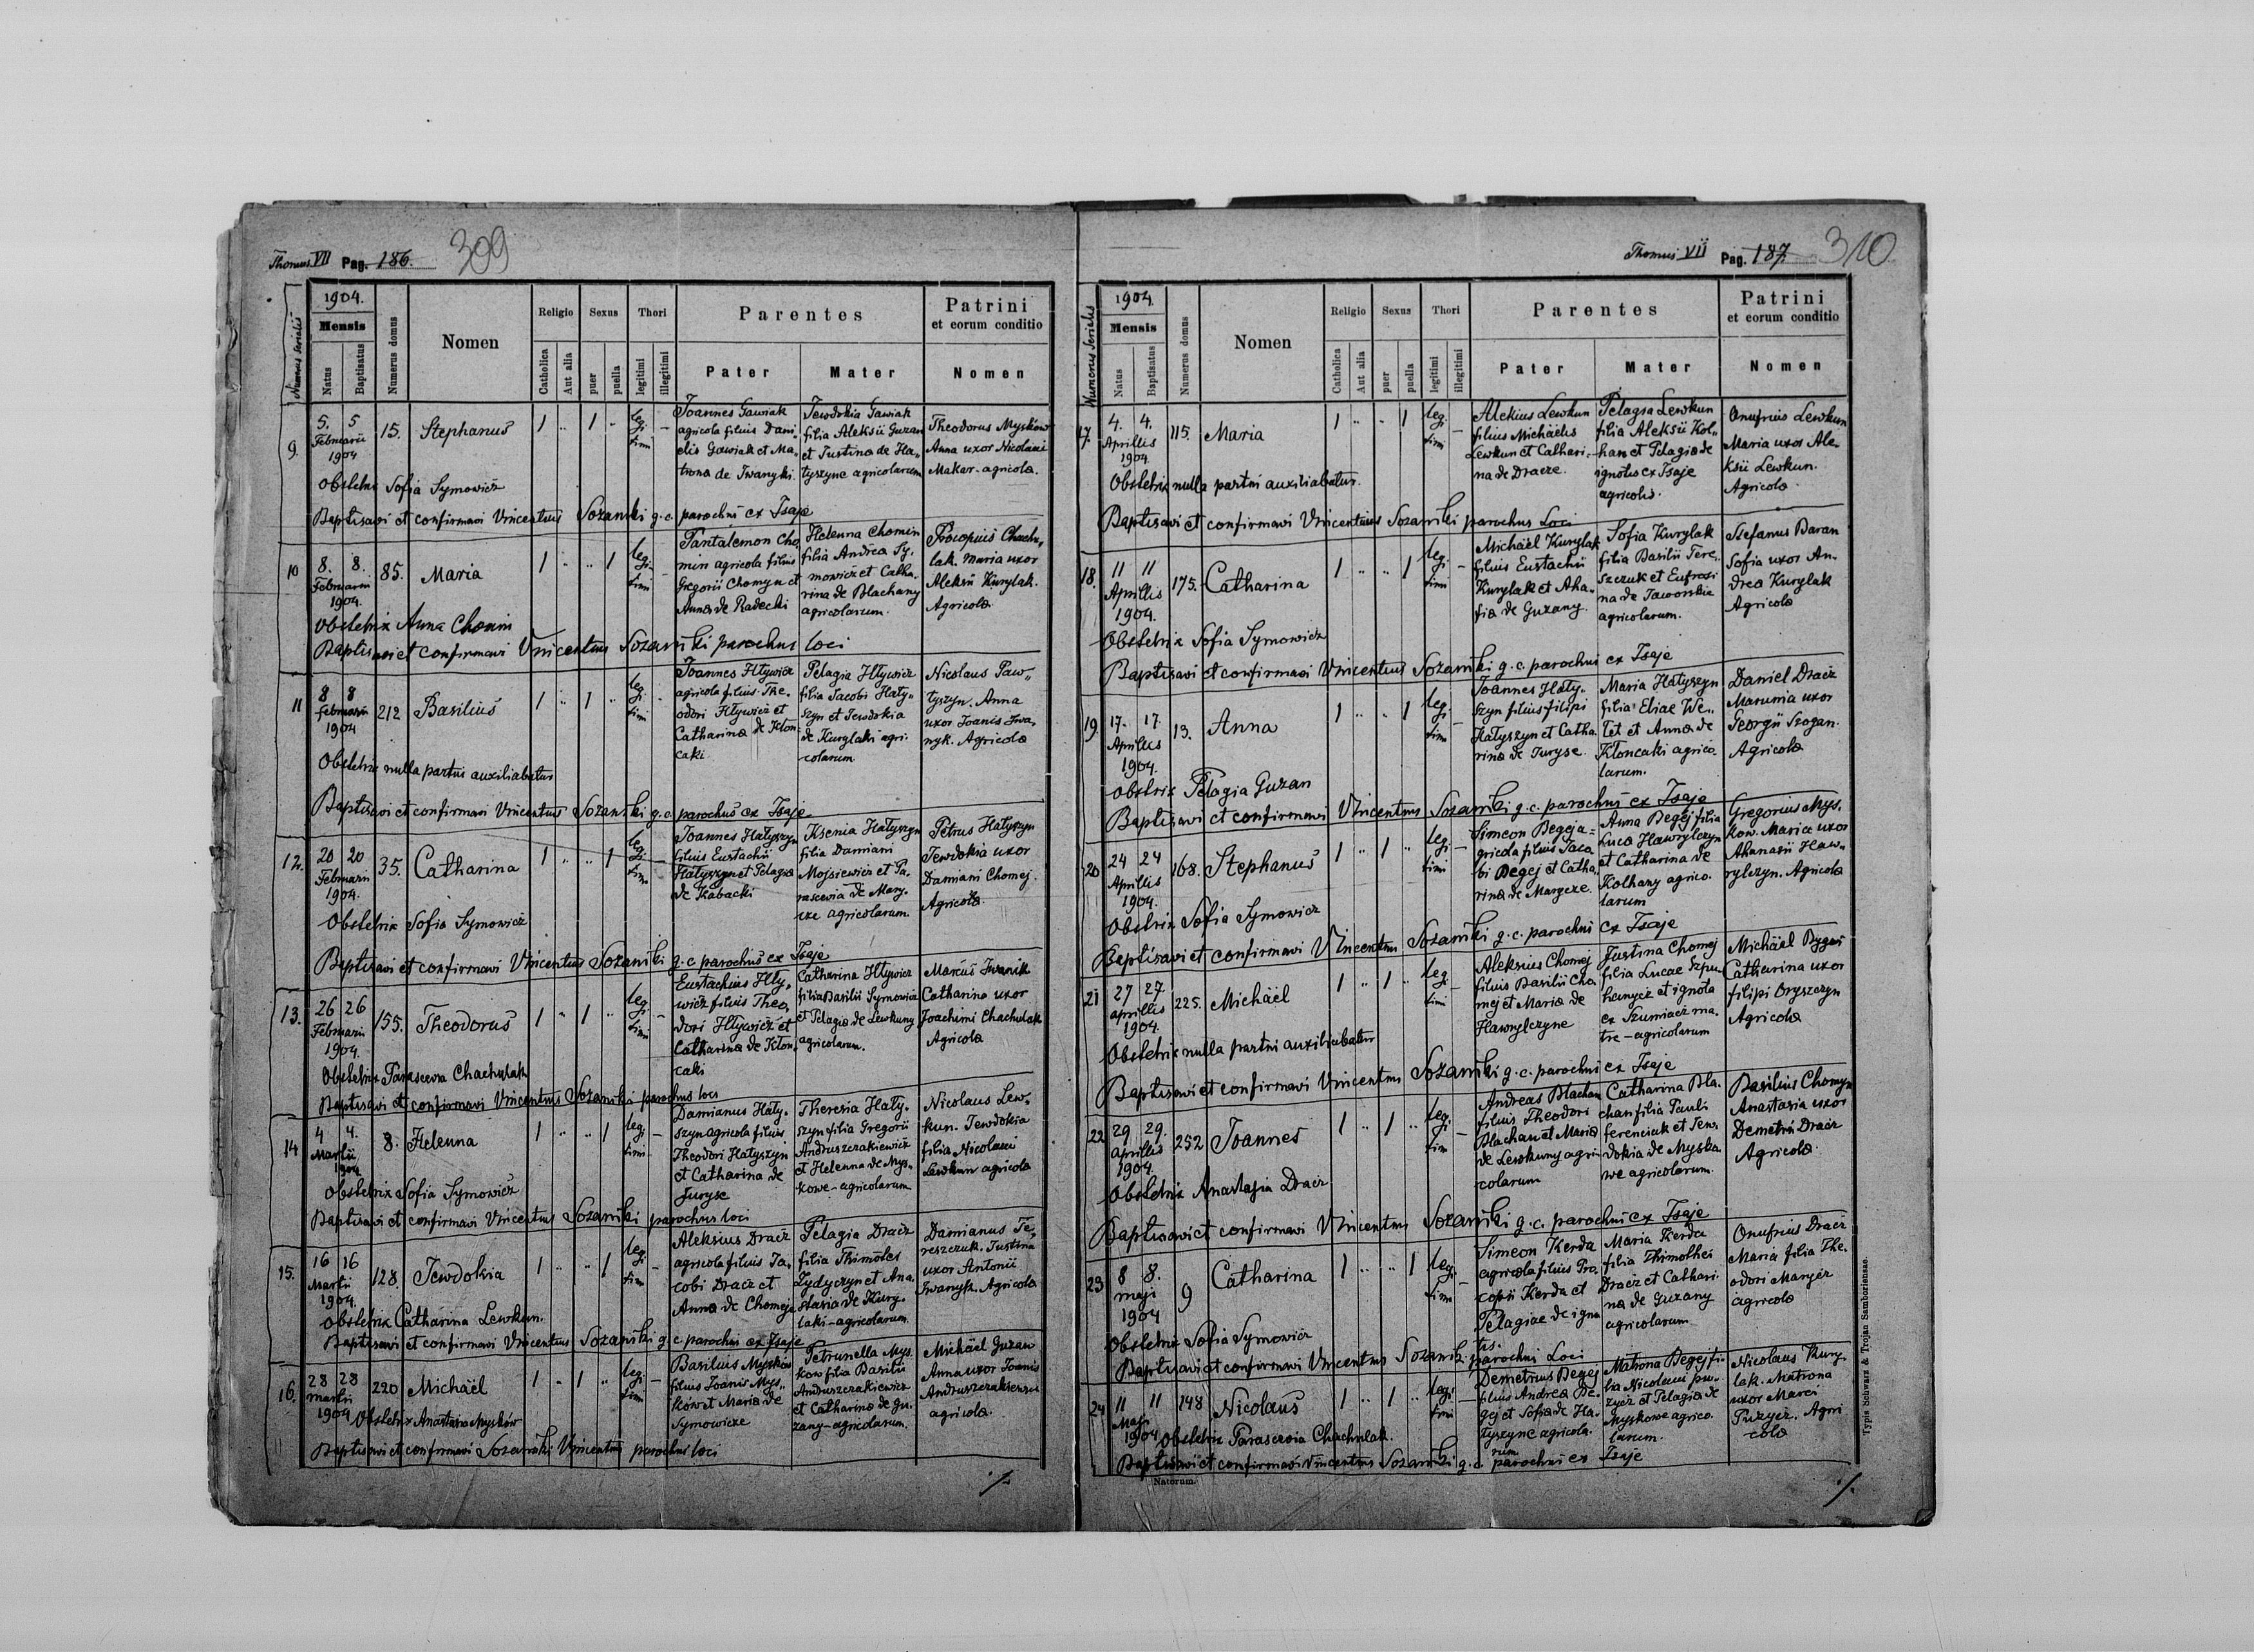 Thomus VII Pag. 186. 309
Numerus serialis
1904.
Mensis
Natus
Baptisatus
Numerus domus
Nomen
Religio
Catholica
Aut alia
Sexus
puer
puella
Thori
legitimi
illegitimi
Parentes
Pater
Mater
Patrini
et eorum conditio
Nomen
9.
5. 5
Februarii
1904
15.
Stephanus
1 .. 1 ..
legi
timi
Joannes Gawiak
agricola filius Dani„
elis Gawiak et Ma„
trona de Iwanyki.
Jewdokia Gawiak
filia Aleksii Guzan
et Justina de Ha„
tyszyne agricolarum
Theodorus Myskow
Anna uxor Nicolaui
Makar - agricola.
Obstetrix Sofia Symowicz
Baptisavi et confirmavi Vincentius Sozański g. c. parochus ex Isaje
10
8. 8.
Februarii
1904.
85.
Maria
1 .. .. 1
legi
timi
Pantalemon Cho
min agricola filius
Gregorii Chomyn et
Anna de Radecki
Helenna Chomin
filia Andrea Sy„
mowicz et Catha„
rina de Blachany
agricolarum.
Procopius Chachu„
lak. Maria uxor
Aleksii Kurylak.
Agricola.
Obstetrix Anna Chomin
Baptisavi et confirmavi Vincentius Sozański parochus loci
11
8 8
Februarii
1904
212
Basilius
1 .. 1 ..
legi
timi
Joannes Hływicz
agricola filius The„
odori Hływicz et
Catharina de Kłon
caki
Pelagia Hływicz
filia Jacobi Haty„
szyn et Jewdokia
de Kurylaki agri„
colarum
Nicolaus Paw„
tyszyn. Anna
uxor Joanis Iwa„
nyk. Agricola
Obstetrix nulla partui auxiliabatur
Baptisavi et confirmavi Vincentius Sozański g. c. parochus ex Isaje
12.
20 20
Februarii
1904.
35.
Catharina
1 .. .. 1
legi
timi
Joannes Hatyszyn
filius Eustachii
Hatyszyn et Pelagia
de Kabacki
Ksenia Hatyszyn
filia Damiani
Mojsiewicz et Pa„
rascewia de Mary„
cze agricolarum.
Petrus Hatyszyn
Jewdokia uxor
Damiani Chomej.
Agricola.
Obstetrix Sofia Symowicz
Baptisavi et confirmavi Vincentius Sozański g. c. parochus ex Isaje
13.
26 26
Februarii
1904.
155.
Theodorus
1 .. 1 ..
legi
timi
Eustachius Hły„
wicz filius Theo„
dori Hływicz et
Catharina de Kłon„
caki
Catharina Hływicz
filia Basilii Symowicz
et Pelagia de Lewkuny
agricolarum.
Marcus Iwanik
Catharina uxor
Joachimi Chachulak
Agricola
Obstetrix Parascevia Chachulak
Baptisavi et confirmavi Vincentius Sozański parochus loci
14
4 4.
Martii
1904
8.
Helenna
1 .. .. 1
legi
timi
Damianus Haty„
szyn agricola filius
Theodori Hatyszyn
et Catharina de
Juryse
Theresia Haty„
szyn filia Gregorii
Andruszczakiewicz
et Helenna de Mys„
kowe - agricolarum
Nicolaus Lew„
kun. Jewdokia
filia Nicolaui
Lewkun agricola
Obstetrix Sofia Symowicz
Baptisavi et confirmavi Vincentius Sozański parochus loci
15.
16 16
Martii
1904.
128.
Jewdokia
1 .. .. 1
legi
timi
Aleksius Dracz
agricola filius Ja„
cobi Dracz et
Anna de Chomeja
Pelagia Dracz
filia Thimotei
Żydyczyn et Ana„
stasia de Kury„
laki - agricolarum.
Damianus Te„
reszczuk. Justina
uxor Antonii
Iwanyk. Agricola
Obstetrix Catharina Lewkun.
Baptisavi et confirmavi Vincentius Sozański g. c. parochus ex Isaje
16.
28 28
Martii
1904
220
Michäel
1 .. 1 ..
legi
timi
Basilius Myskow
filius Joanis Mys„
kow et Maria de
Symowicze
Petrunella Mys„
kow filia Basilii
Andruszczakiewicz
et Catharina de Gu„
zany - agricolarum.
Michäel Guzan
Anna uxor Joanis
Andruszczakiewicz
agricola.
Obstetrix Anastasia Myskow
Baptisavi et confirmavi Sozański Vincentius parochus loci
./.
Thomus VII Pag. 187. 310
Numerus serialis
1904.
Mensis
Natus
Baptisatus
Numerus domus
Nomen
Religio
Catholica
Aut alia
Sexus
puer
puella
Thori
legitimi
illegitimi
Parentes
Pater
Mater
Patrini
et eorum conditio
Nomen
17.
4. 4.
Aprilis
1904.
115.
Maria
1 .. .. 1
legi
timi
Aleksius Lewkun
filius Michäelis
Lewkun et Cathari„
na de Dracze.
Pelagia Lewkun
filia Aleksii Kol„
han et Pelagia de
ignotis ex Isaje
agricolis.
Onufrius Lewkun
Maria uxor Ale„
ksii Lewkun.
Agricola
Obstetrix nulla partui auxiliabatur.
Baptisavi et confirmavi Vincentius Sozański parochus Loci
18.
11 11
Aprilis
1904.
175.
Catharina
1 .. .. 1
legi
timi
Michäel Kurylak
filius Eustachii
Kurylak et Aha„
fia de Guzany.
Sofia Kurylak
filia Basilii Tere„
szczuk et Eufrosi
na de Jaworskie
agricolarum.
Stefanus Baran
Sofia uxor An„
drea Kurylak
Agricola
Obstetrix Sofia Symowicz
Baptisavi et confirmavi Vincentius Sozański g. c. parochus ex Isaje
19.
17. 17
Aprilis
1904.
13.
Anna
1 .. .. 1
legi
timi
Joannes Haty„
szyn filius filipi
Hatyszyn et Catha„
rina de Juryse.
Maria Hatyszyn
filia Eliae We„
let et Anna de
Kłoncaki agrico„
larum.
Daniel Dracz
Marunia uxor
Georgii Szogan.
Agricola
Obstetrix Pelagia Guzan
Baptisavi et confirmavi Vincentius Sozański g. c. parochus ex Isaje
20
24 24
Aprilis
1904.
168.
Stephanus
1 .. 1 ..
legi
timi
Simeon Begej a=
gricola filius Jaco„
bi Begej et Catha„
rina de Marycze.
Anna Begej filia
Luca Hawrylczyn
et Catharina de
Kolhany agrico„
larum
Gregorius Mys„
kow. Maria uxor
Athanasii Haw„
rylczyn. Agricola
Obstetrix Sofia Symowicz
Baptisavi et confirmavi Vincentius Sozański g. c. parochus ex Isaje
21
27 27.
Aprilis
1904.
225.
Michäel
1 .. 1 ..
legi
timi
Aleksius Chomej
filius Basilii Cho„
mej et Maria de
Hawrylczyne
Justina Chomej
filia Lucae Szpu„
hanycz et ignota
ex Szumiacz ma„
tre - agricolarum
Michäel Bygar
Catharina uxor
filipi Oryszczyn
Agricola
Obstetrix nulla partui auxiliabatur
Baptisavi et confirmavi Vincentius Sozański g. c. parochus ex Isaje
22
29 29.
Aprilis
1904.
252
Joannes
1 .. 1 ..
legi
timi
Andreas Blachan
filius Theodori
Blachan et Maria
de Lewkuny agri„
colarum
Catharina Bla„
chan filia Pauli
ferenciuk et Jew„
dokia de Mysko„
we agricolarum.
Basilius Chomyn
Anastasia uxor
Demetrii Dracz
Agricola.
Obstetrix Anastasia Dracz
Baptisavi et confirmavi Vincentius Sozański g. c. parochus ex Isaje
23
8 8.
Maji
1904
9
Catharina
1 .. .. 1
legi
timi
Simeon Kerda
agricola filius Pro„
copii Kerda et
Pelagiae de igno
tis.
Maria Kerda
filia Thimothei
Dracz et Cathari„
na de Guzany
agricolarum
Onufrius Dracz
Maria filia The„
odori Marycz
agricola
Obstetrix Sofia Symowicz
Baptisavi et confirmavi Vincentius Sozański parochus Loci
24
11 11
Maji
1904
148
Nicolaus
1 .. 1 ..
legi
timi
Demetrius Begej
filius Andrea Be„
gej et Sofia de Ha„
tyszyne agricola„
rum.
Matrona Begej fi„
lia Nicolaui Pu„
zycz et Pelagia de
Myskowe agrico„
larum.
Nicolaus Kury„
lak. Matrona
uxor Marci
Puzycz. Agri
cola
Obstetrix Parascevia Chachulak.
Baptisavi et confirmavi Vincentius Sozański g. c. parochus ex Isaje
Natorum.
./.
Typis Schwarz & Trojan Samboriensae.